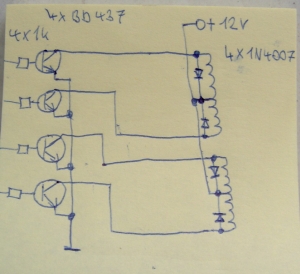 4×BD437
4×1k
+12V
4×1N4007